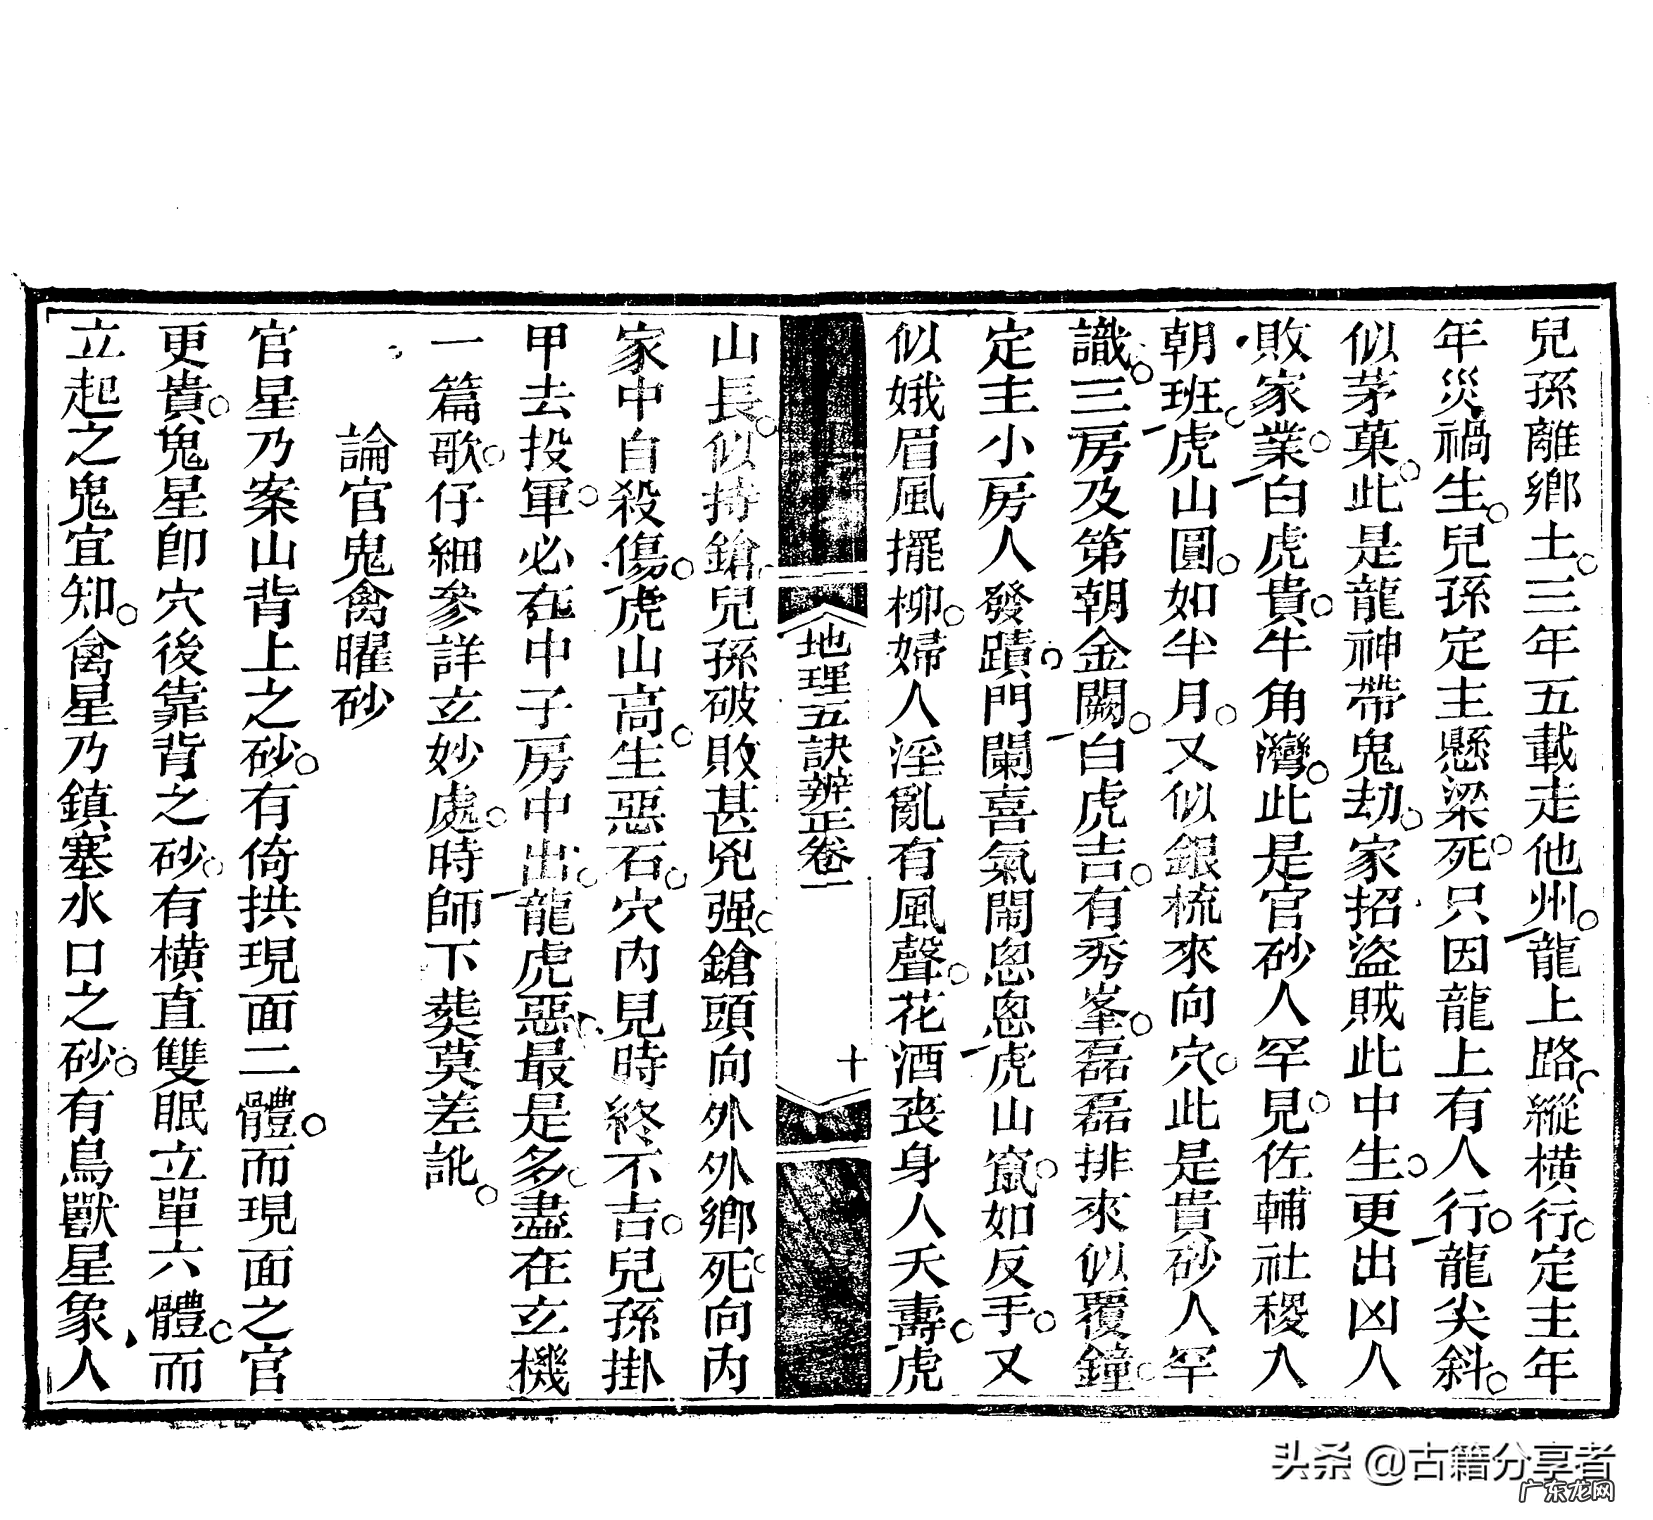 兒孫離鄉土三年五載走他州龍上路縱橫行定主年
年災禍生兒孫定主懸梁死只因龍上有人行龍尖斜
似茅菓此是龍神帶鬼劫家招盜賊此中生更出凶人
敗家業白虎貴牛角灣此是官砂人罕見佐輔社稷入
朝班虎山圓如半月又似銀梳來向穴此是貴砂人罕
識三房及第朝金闕白虎吉有秀峯磊磊排來似覆鐘
定主小房人發蹟門闌喜氣鬧悤悤虎山竄如反手又
似娥眉風擺柳婦人淫亂有風聲花酒喪身人夭壽虎
地理五訣辨正卷一
十
山長似持鎗兒孫破敗甚兇强鎗頭向外外鄉死向內
家中自殺傷虎山高生惡石穴內見時終不吉兒孫掛
甲去投軍必在中子房中出龍虎惡最是多盡在玄機
一篇歌仔細參詳玄妙處時師下葬莫差訛
論官鬼禽曜砂
官星乃案山背上之砂有倚拱現面二體而現面之官
更貴鬼星卽穴後靠背之砂有橫直雙眠立單六體而
立起之鬼宜知禽星乃鎮塞水口之砂有鳥獸星象人
头条 @古籍分享者
广东龙网